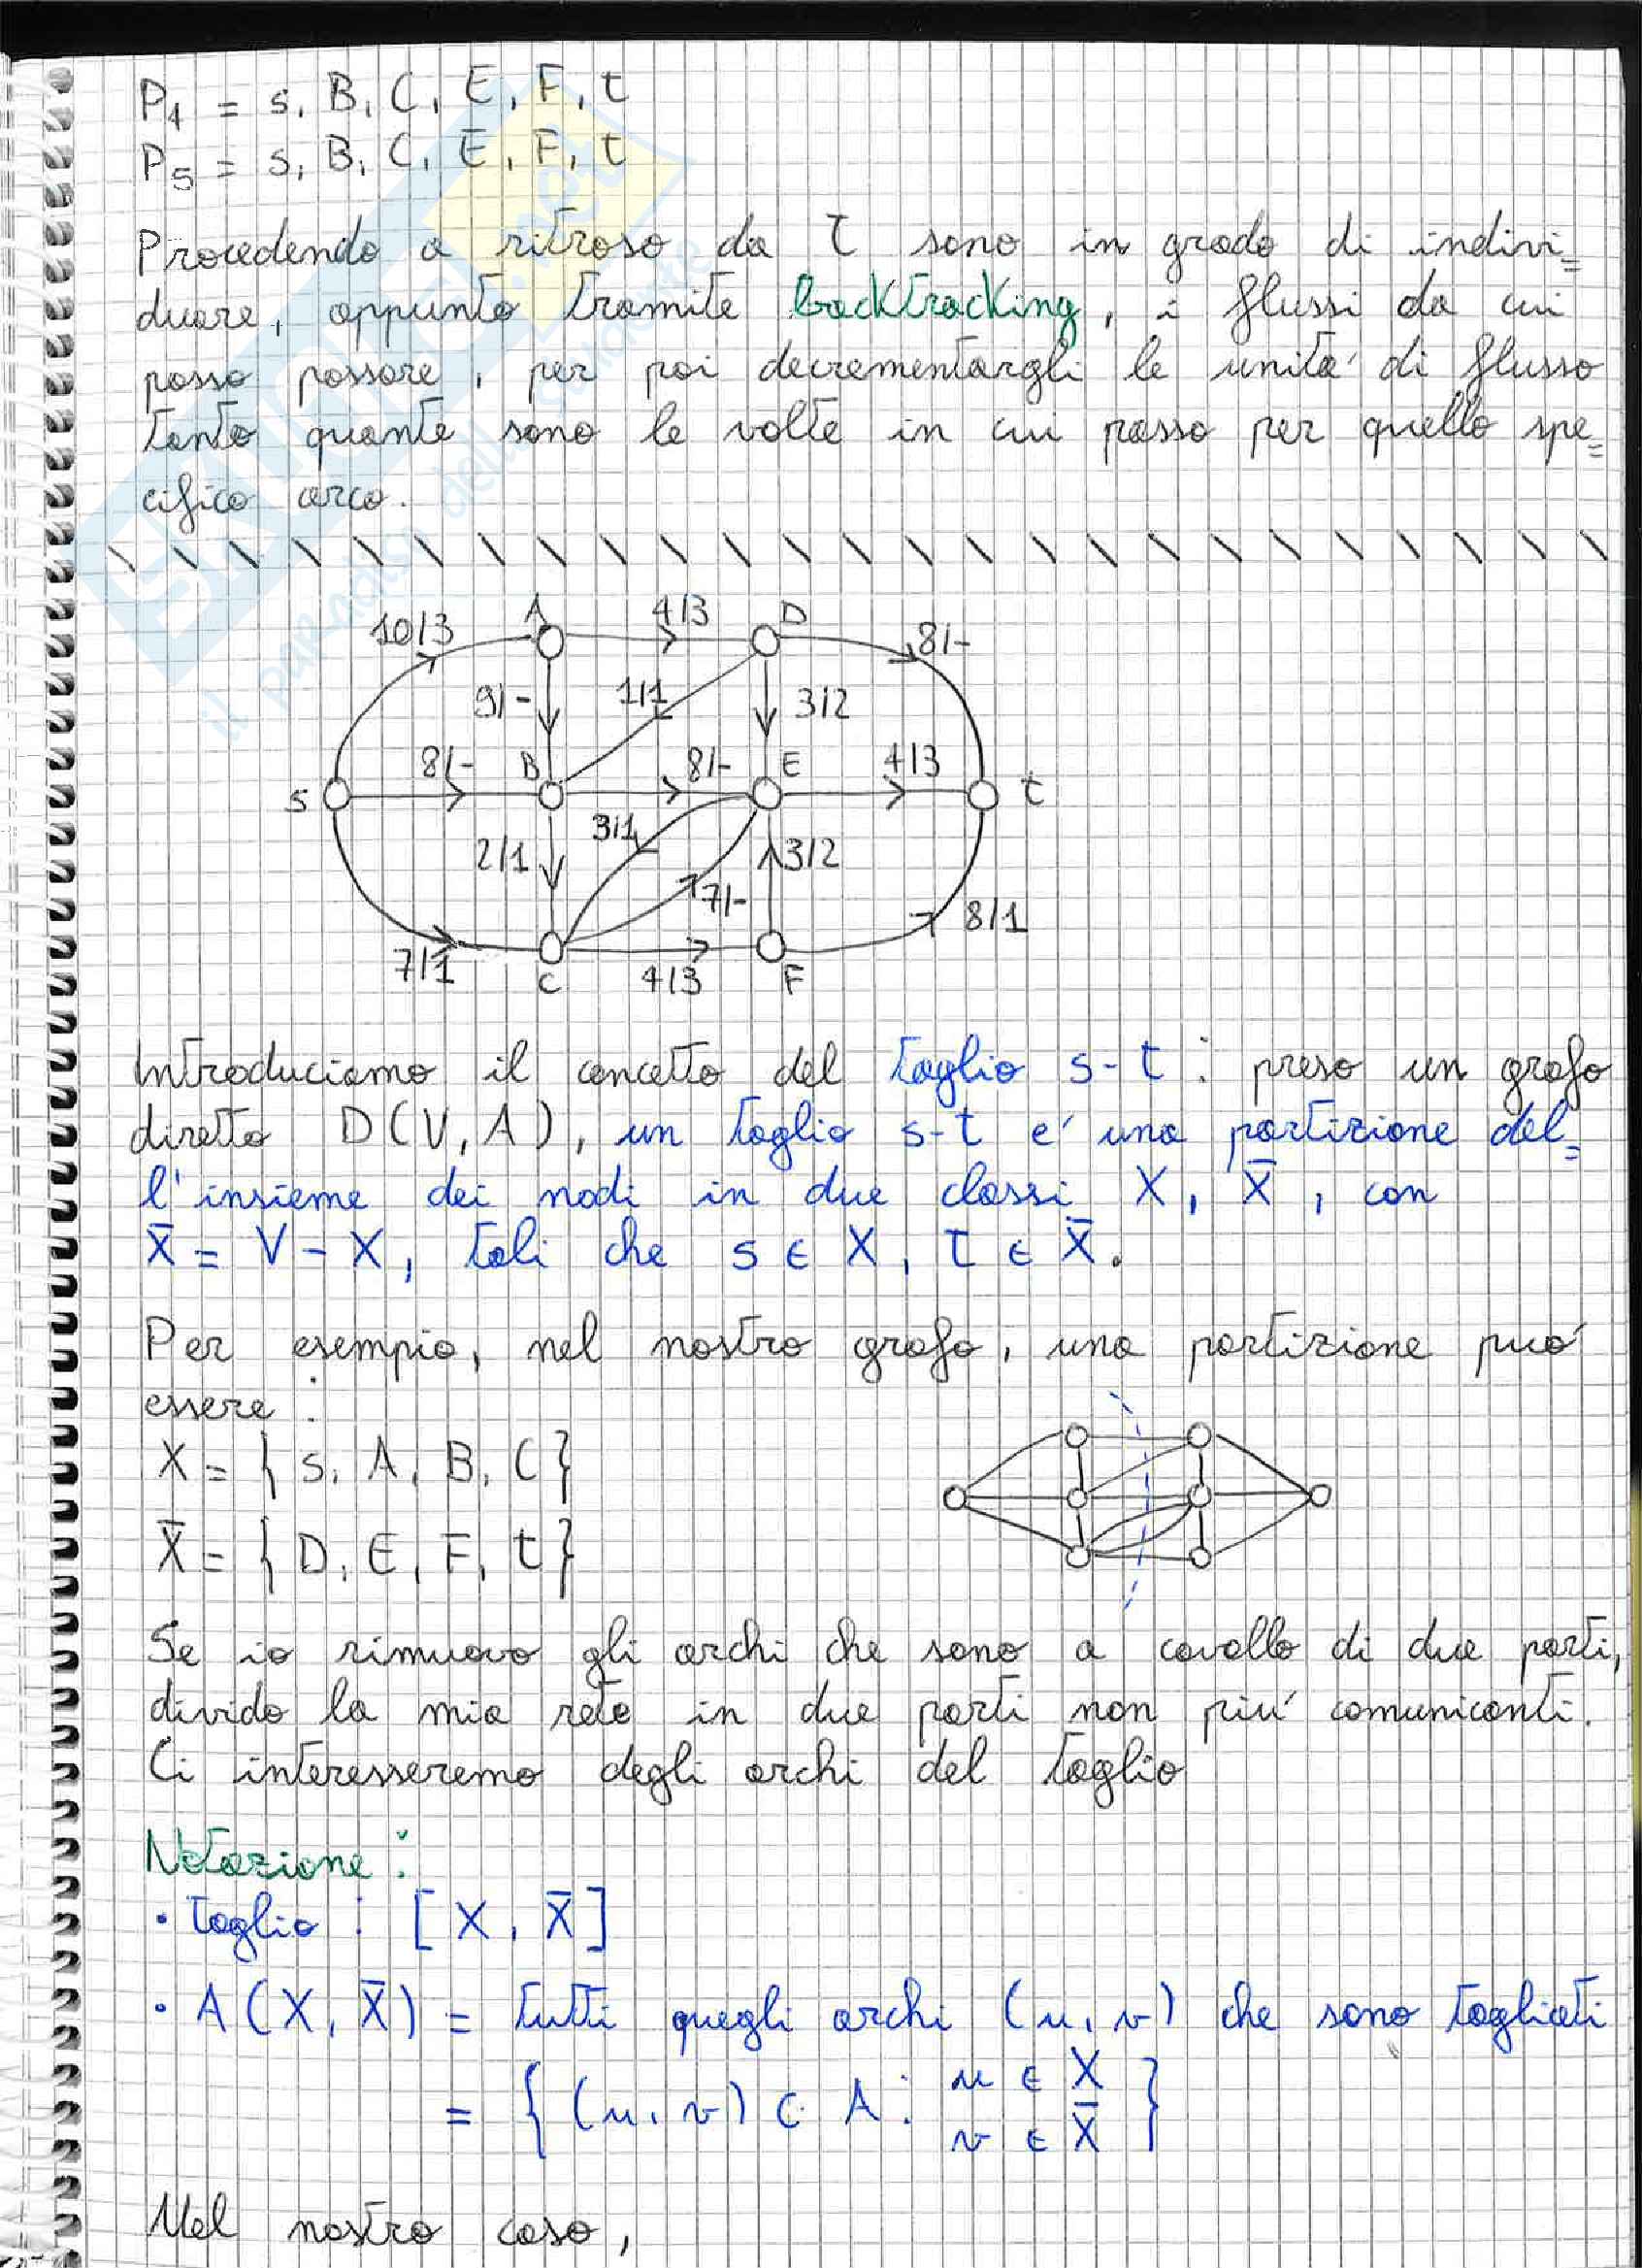 P4 = s, B, C, E, F, t
P5 = s, B, C, E, F, t
Procedendo a ritroso da t sono in grado di indivi=
duare, appunto tramite backtracking, i flussi da cui
posso passare, per poi decrementargli le unità di flusso
tanto quante sono le volte in cui passo per quello spe=
cifico arco.
A 4/3 D
10/3 8/-
9/- 1/1 3/2
8/- B 8/- E 4/3
s t
3/1
2/1 3/2
7/- 8/1
7/1 C 4/3 F
Introduciamo il concetto del taglio s-t : preso un grafo
diretto D(V, A), un taglio s-t e' una partizione del=
l'insieme dei nodi in due classi X, X̄, con
X̄ = V - X, tali che s ∈ X, t ∈ X̄.
Per esempio, nel nostro grafo, una partizione può
essere :
X = { s, A, B, C }
X̄ = { D, E, F, t }
Se io rimuovo gli archi che sono a cavallo di due parti,
divido la mia rete in due parti non più comunicanti.
Ci interesseremo degli archi del taglio
Notazione :
• taglio : [ X, X̄ ]
• A(X, X̄) = tutti quegli archi (u, v) che sono tagliati
= { (u, v) ∈ A : u ∈ X
v ∈ X̄ }
Nel nostro caso,